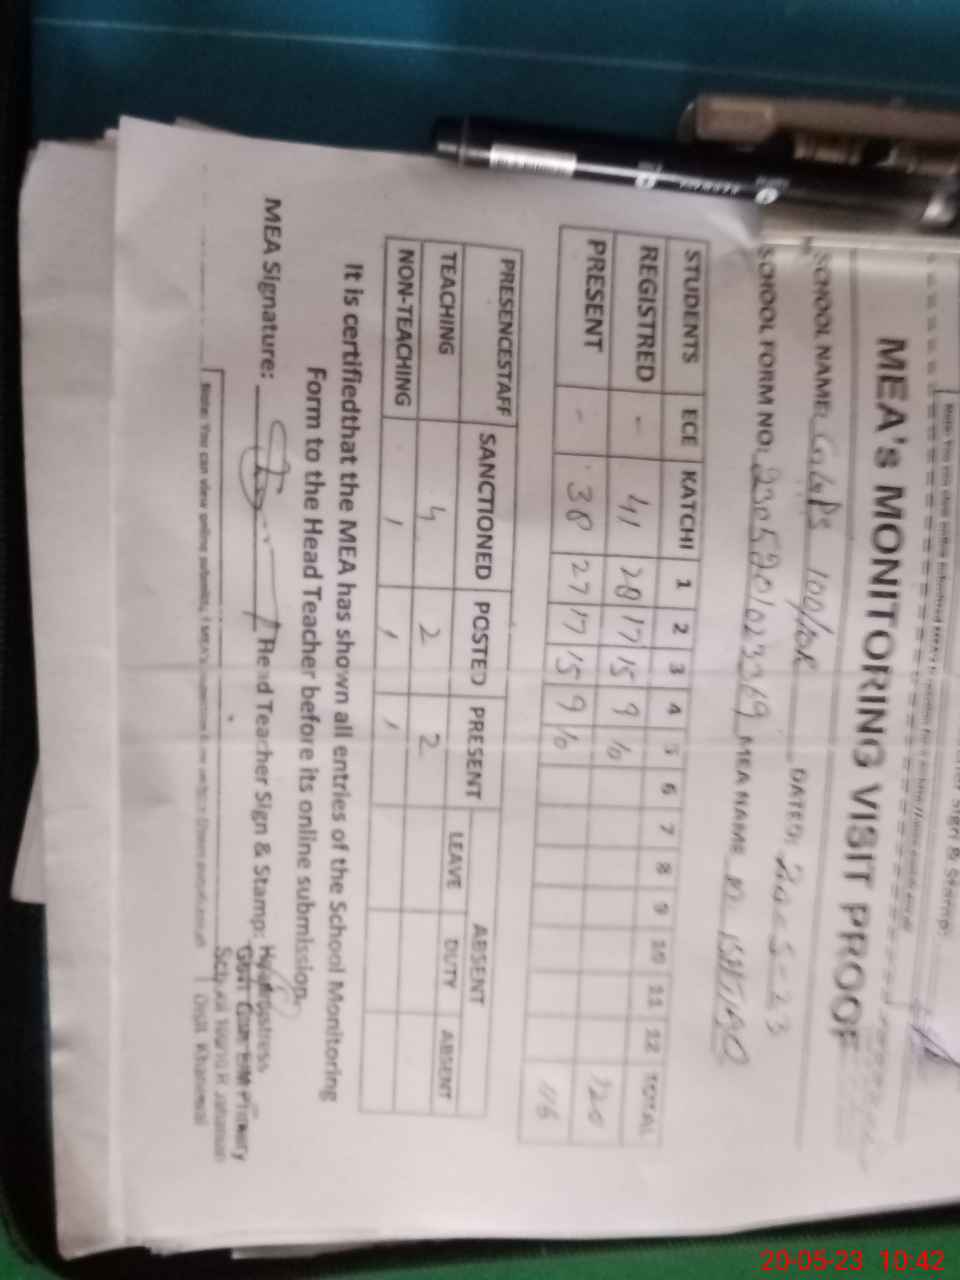 Sign & Stamp:
MEA'S MONITORING VISIT PROOF
SCHOOL NAME: GGPS 100/10R DATED: 20-5-23
SCHOOL FORM NO: 2305201023369 MEA NAME
STUDENTS ECE KATCHI 1 2 3 4 5 6 7 8 9 10 11 12 TOTAL
REGISTRED - 41 28 17 15 9 10 120
PRESENT - 38 27 17 15 9 10 116
PRESENCESTAFF SANCTIONED POSTED PRESENT ABSENT
LEAVE DUTY ABSENT
TEACHING 4 2 2
NON-TEACHING 1 1 1
It is certifiedthat the MEA has shown all entries of the School Monitoring
Form to the Head Teacher before its online submission.
MEA Signature: Head Teacher Sign & Stamp: Headmistress
Govt. Girls Primary
School
Distt. Khanewal
Note: You can view online
20-05-23 10:42